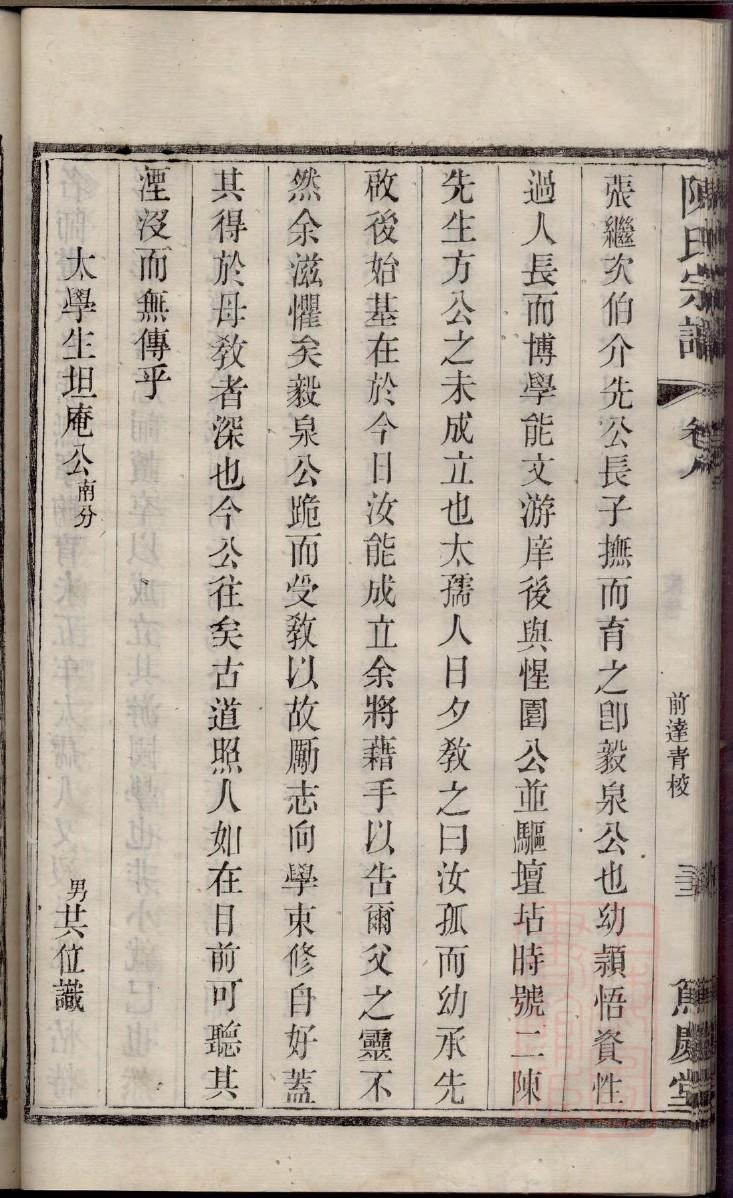 陳氏宗譜
卷八
前達青棱
張繼次伯介先公長子撫而育之卽毅泉公也幼穎悟資性
過人長而博學能文游庠後與惺園公並驅壇坫時號二陳
先生方公之未成立也太孺人日夕敎之曰汝孤而幼承先
啟後始基在於今日汝能成立余將藉手以告爾父之靈不
然余滋懼矣毅泉公跪而受敎以故勵志向學束修自好蓋
其得於母敎者深也今公往矣古道照人如在目前可聽其
湮沒而無傳乎
太學生坦庵公南分
男共位識